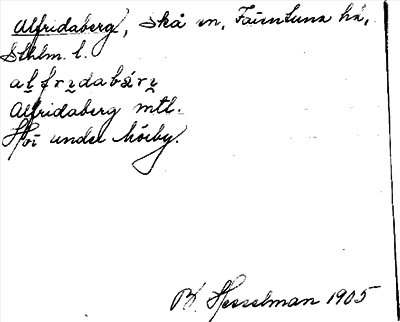 Alfridaberg, Skå sn, Färentuna hd,
Sthlm. l.
alfridabærj
Alfridaberg mtl.
Hör under Mörby.
B. Hesselman 1905